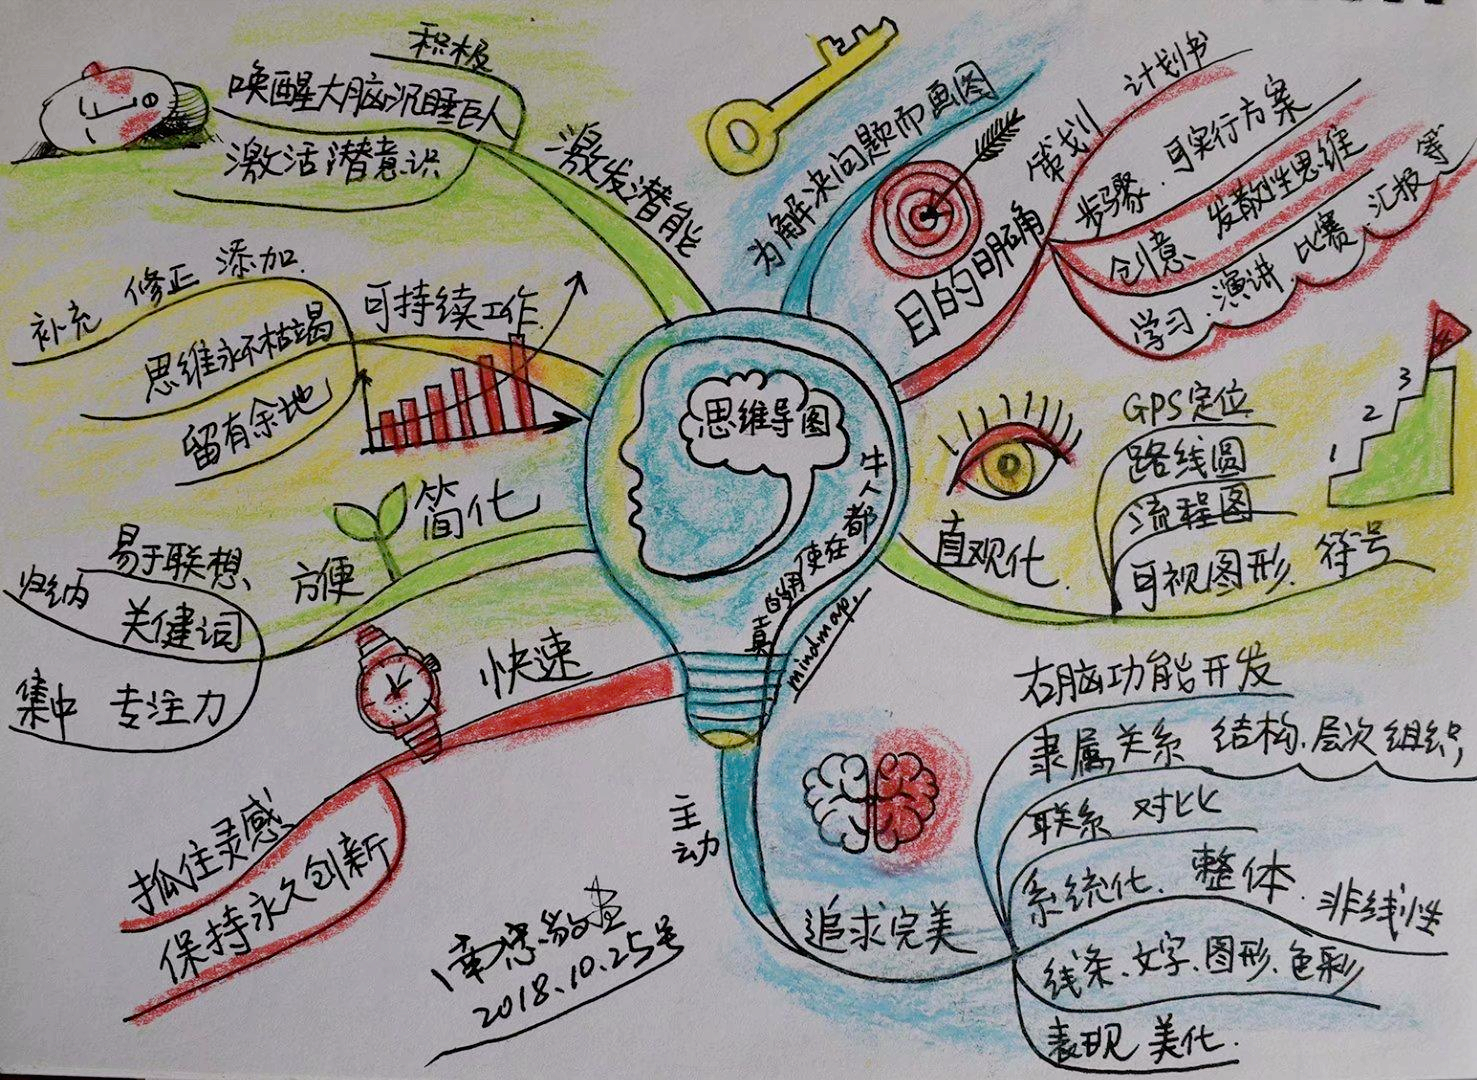 思维导图
牛人都
在使
用的
真
mindmap.
为解决问题而画图
目的明确
策划 计划书
步骤、可实行方案
创意、发散性思维
学习、演讲 比赛、汇报 等
直观化.
GPS定位
路线圆
流程图
可视图形. 符号
1
2
3
追求完美
主动
右脑功能开发
隶属关系 结构、层次 组织
联系 对比
系统化、整体. 非线性
线条、文字、图形、色彩
表现 美化.
快速
抓住灵感
保持永久创新
简化
方便
易于联想、
归纳 关键词
集中 专注力
可持续工作.
补充 修正 添加.
思维永不枯竭
留有余地
激发潜能
积极
唤醒大脑沉睡巨人
激活潜意识
2018.10.25号